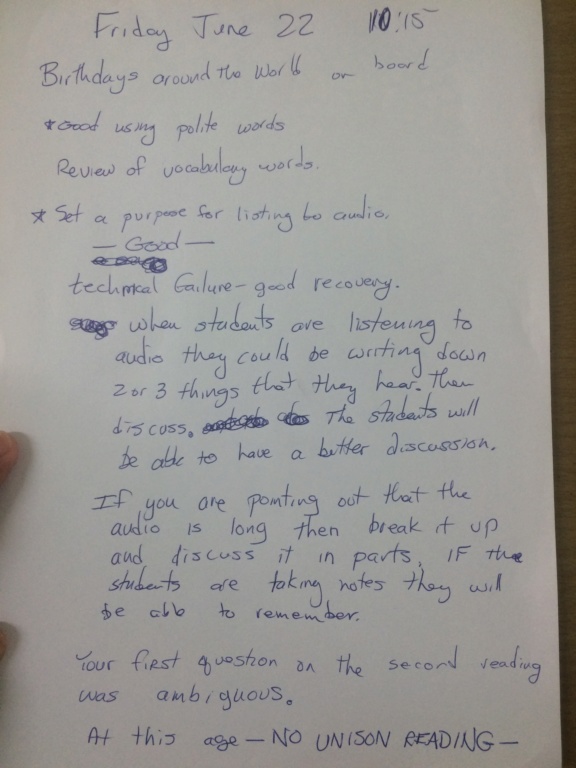 Friday June 22 10:15
Birthdays around the World on board
*Good using polite words
Review of vocabulary words.
* Set a purpose for listing to audio.
— Good —
technical failure - good recovery.
when students are listening to
audio they could be writing down
2 or 3 things that they hear. Then
discuss. The students will
be able to have a better discussion.
If you are pointing out that the
audio is long then break it up
and discuss it in parts. IF the
students are taking notes they will
be able to remember.
Your first question on the second reading
was ambiguous.
At this age — NO UNISON READING —